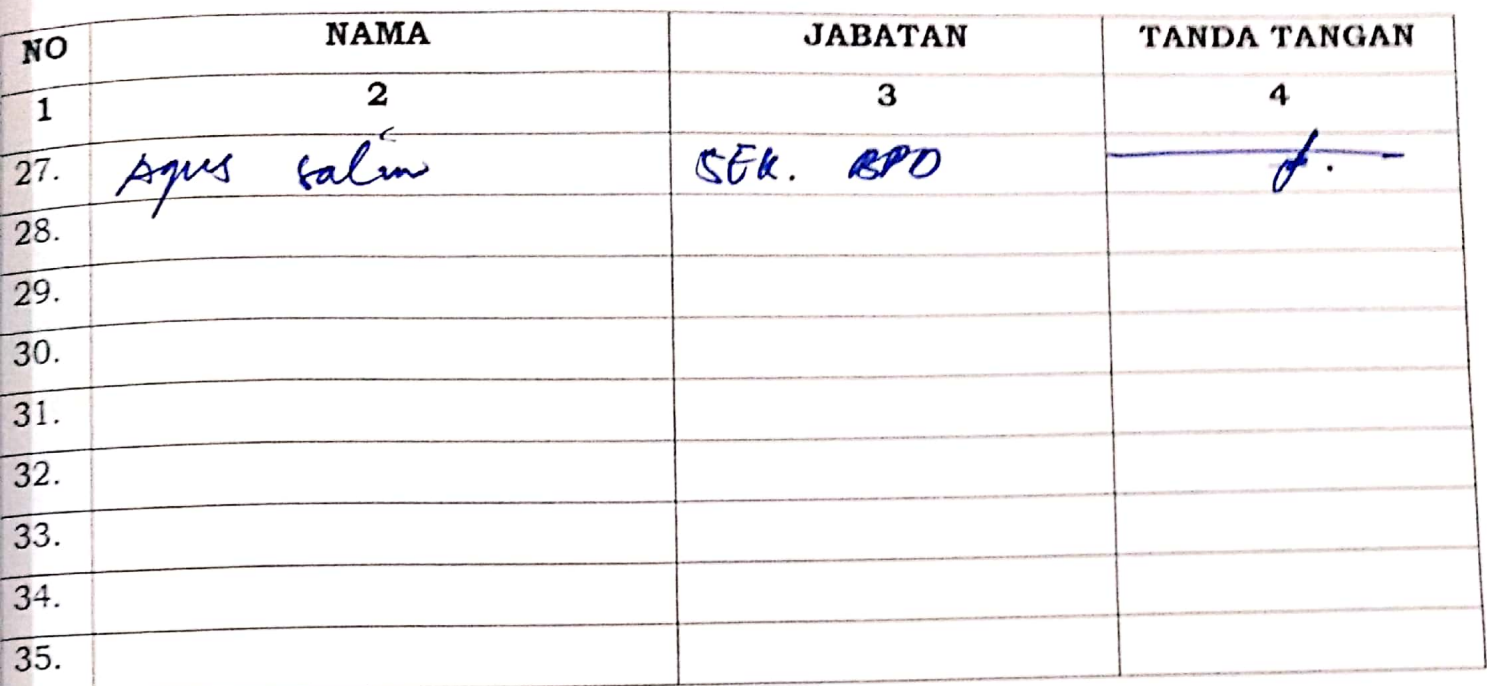 NO NAMA JABATAN TANDA TANGAN
1 2 3 4
27. Agus Salim SEK. BPD
28.
29.
30.
31.
32.
33.
34.
35.